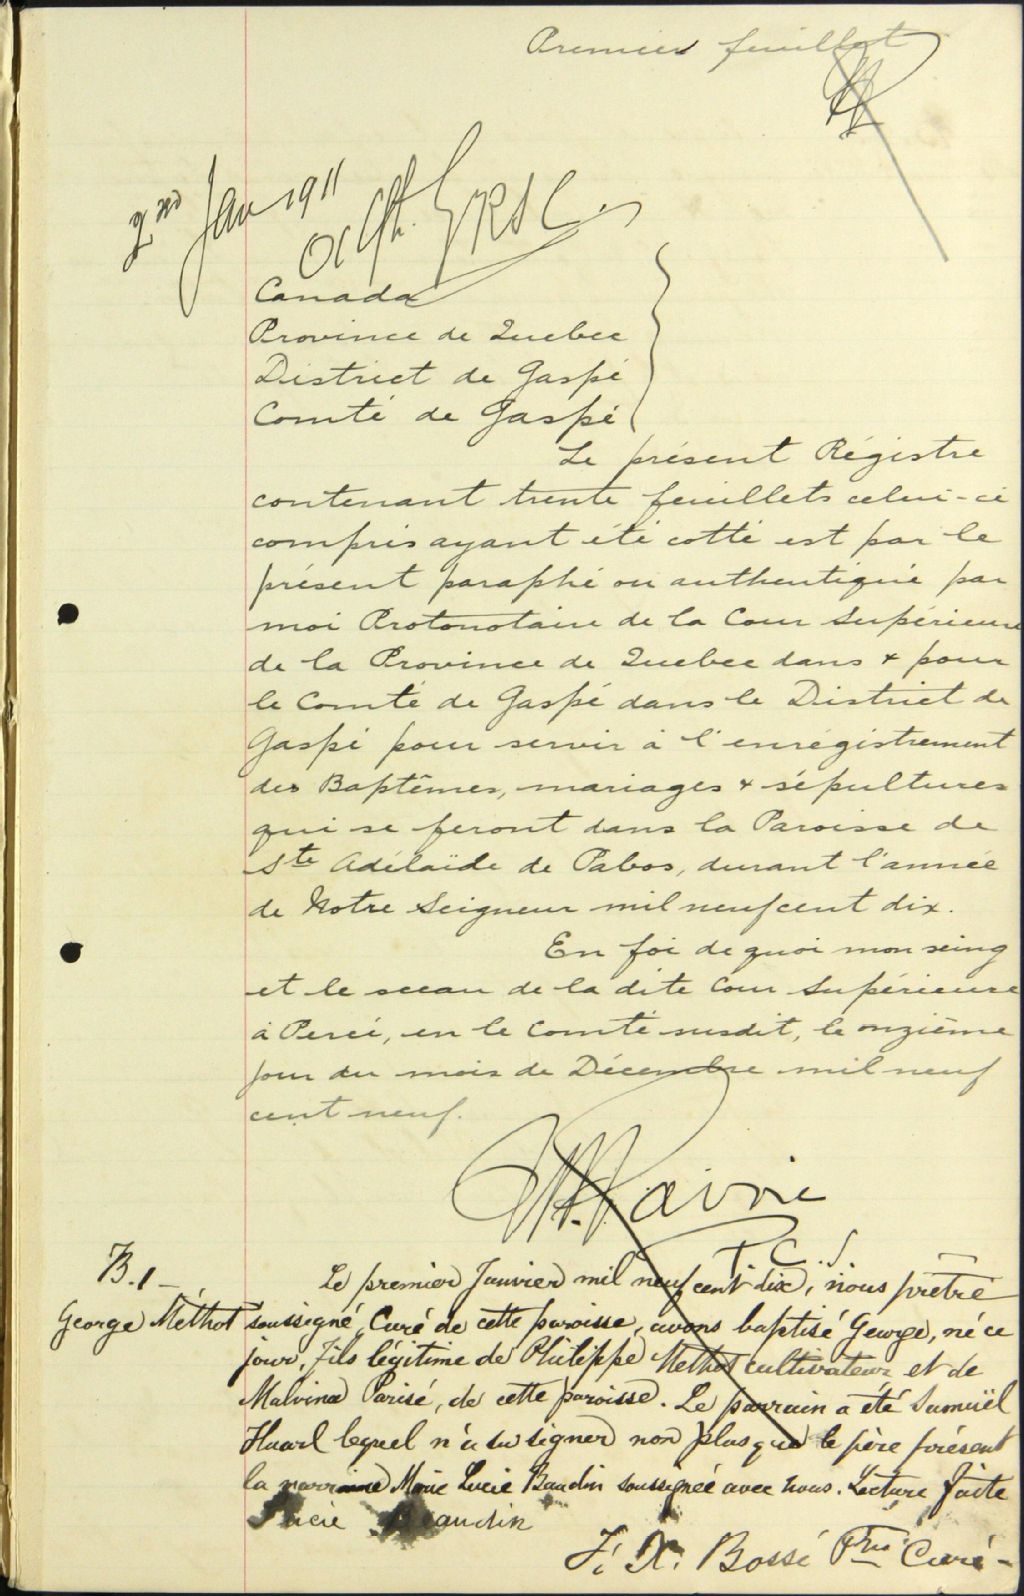 Premier feuillet
2nd Jan 1911
Canada
Province de Quebec
District de Gaspé
Comté de Gaspé
Le présent Régistre
contenant trente feuillets celui-ci
compris ayant été cotté est par le
présent paraphé ou authentiqué par
moi Protonotaire de la Cour Supérieure
de la Province de Quebec dans & pour
le Comté de Gaspé dans le District de
Gaspé pour servir à l'enrégistrement
des Baptêmes, mariages & sépultures
qui se feront dans la Paroisse de
Ste Adélaïde de Pabos, durant l'année
de Notre Seigneur mil neuf cent dix.
En foi de quoi mon seing
et le sceau de la dite Cour Supérieure
à Percé, en le Comté susdit, le onzième
jour du mois de Décembre mil neuf
cent neuf.
P.C.S.
B.1-
George Méthot
Le premier Janvier mil neuf cent dix, nous prêtre
soussigné, Curé de cette paroisse, avons baptisé George, né ce
jour, fils légitime de Philippe Méthot cultivateur et de
Malvina Parisé, de cette paroisse. Le parrain a été Samuël
Huard lequel n'a su signer non plus que le père présent
la marraine Marie Lucie Baudin soussignée avec nous. Lecture faite
Lucie Beaudin
F. X. Bossé Ptre Curé-